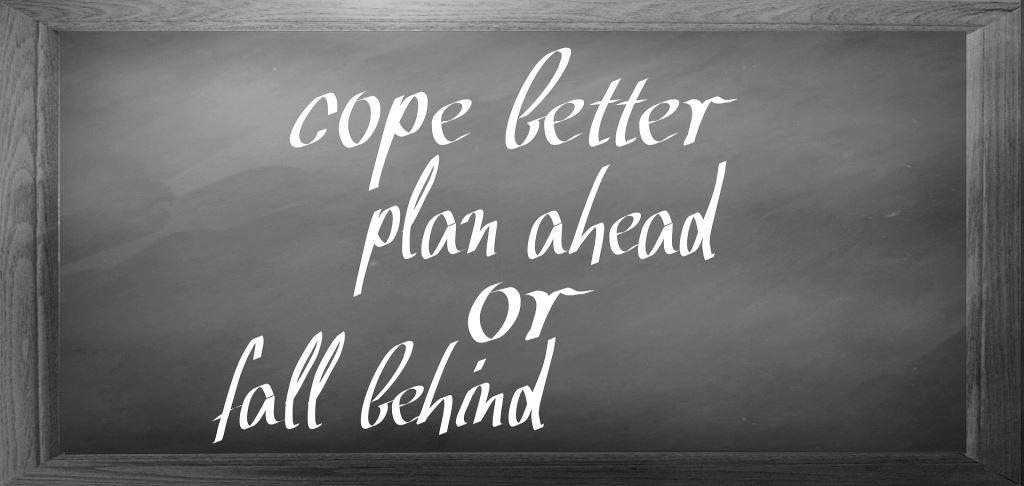 cope better
plan ahead
or
fall behind